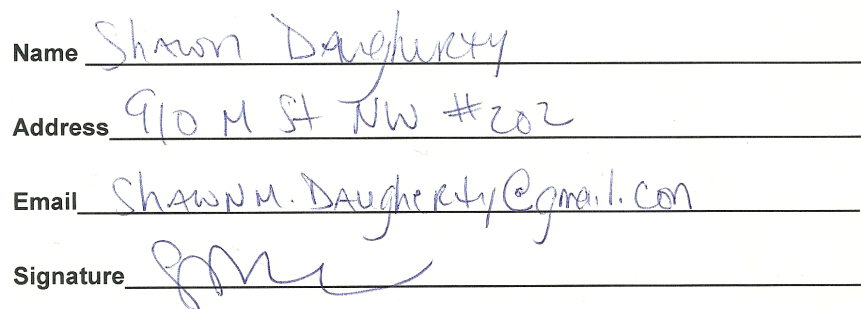 Name Shawn Daugherty
Address 910 M St NW #202
Email ShawnM.Daugherty@gmail.com
Signature